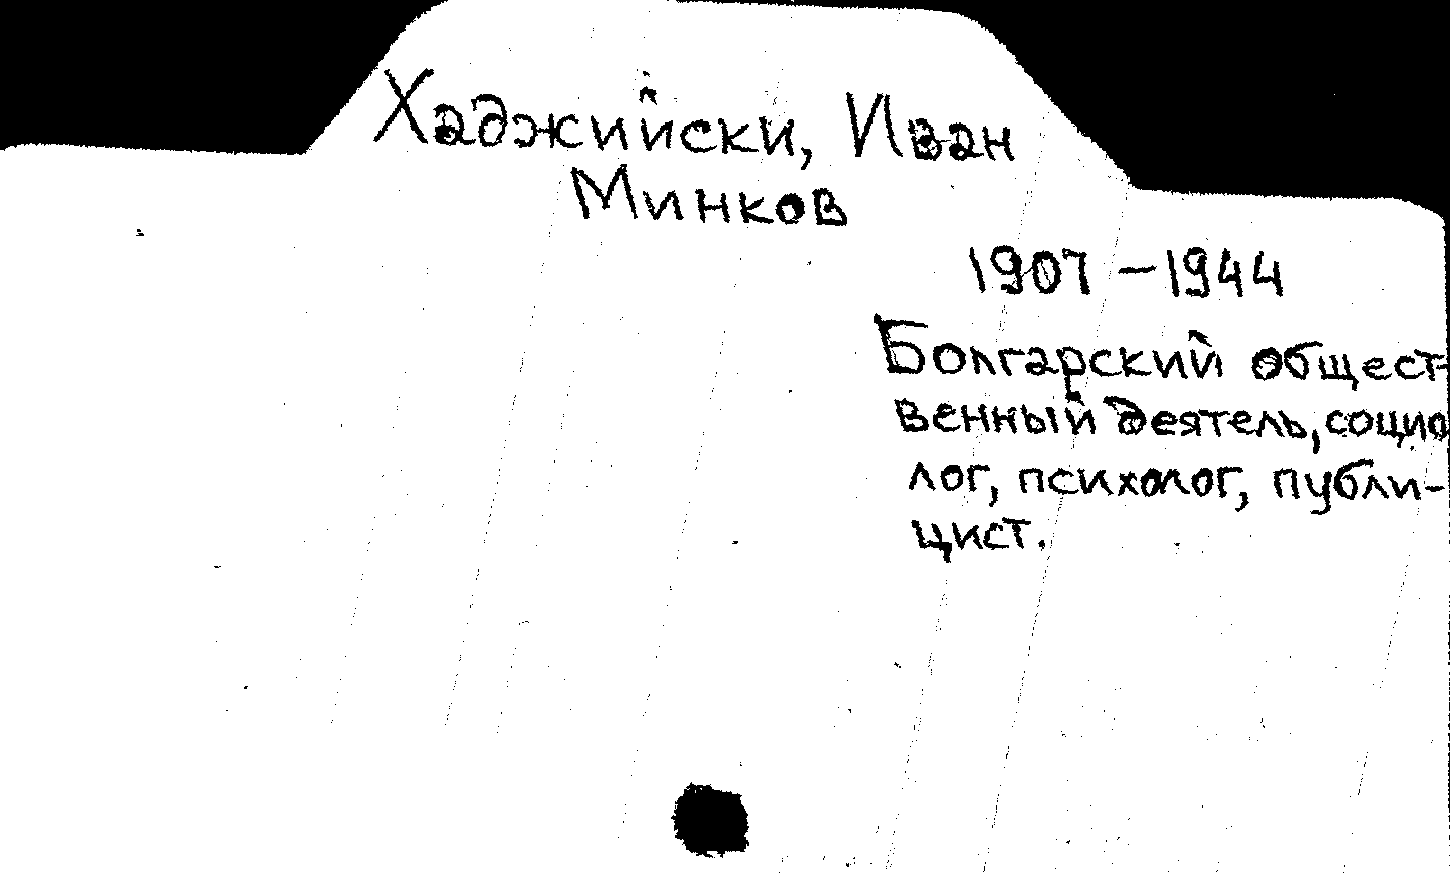 Хаджийски, Иван
Минков
1907 – 1944
Болгарский общест-
венный деятель, социо
лог, психолог, публи-
цист.